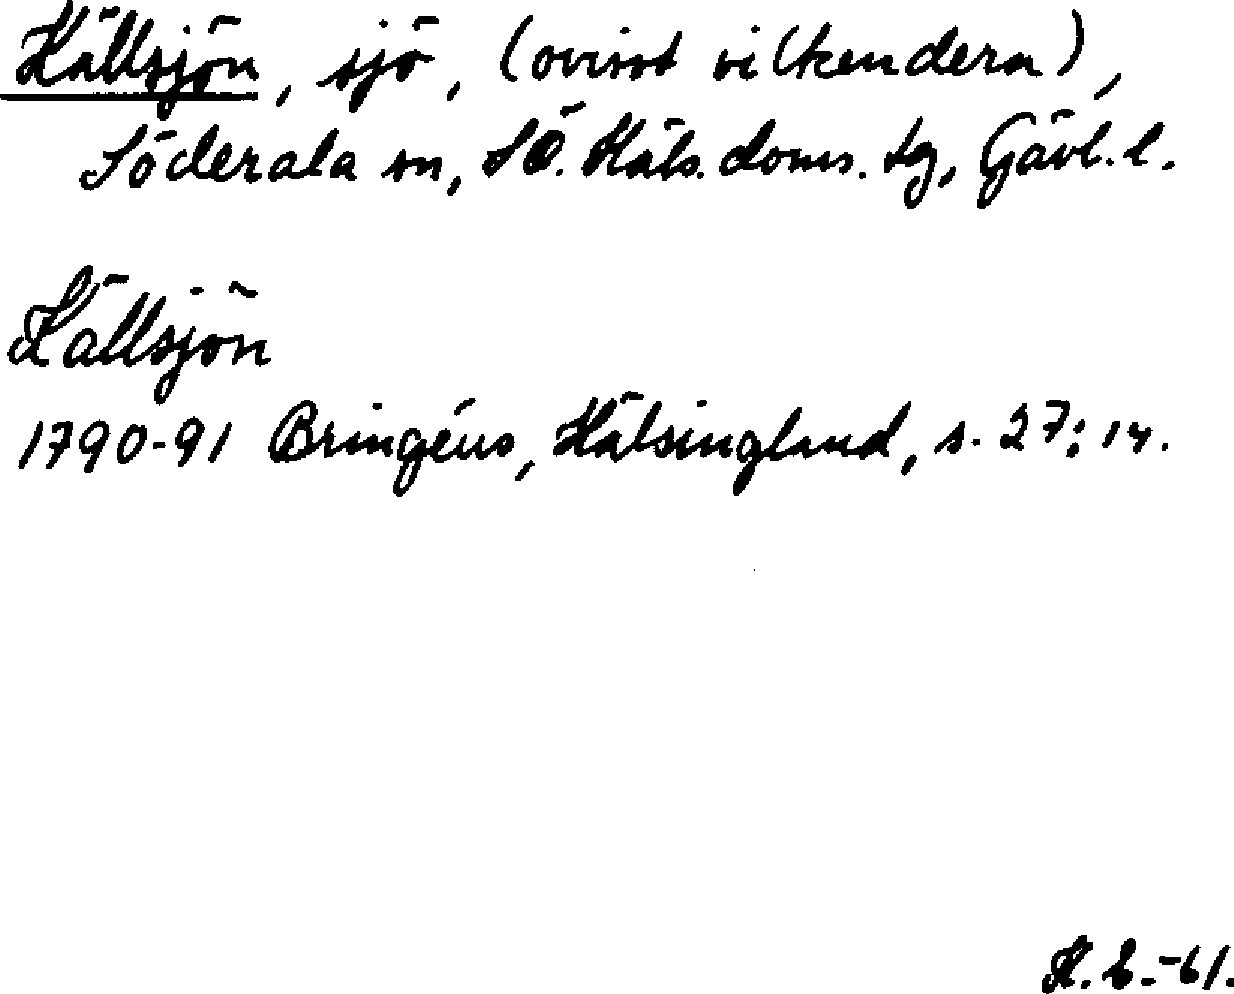 Hällsjön, sjö, (ovisst vilkendera),
Söderala sn, SÖ. Häls. doms. tg, Gävl. l.
Hällsjön
1790-91 Bringéus, Hälsingland, s. 27:14.
K. L. -61.